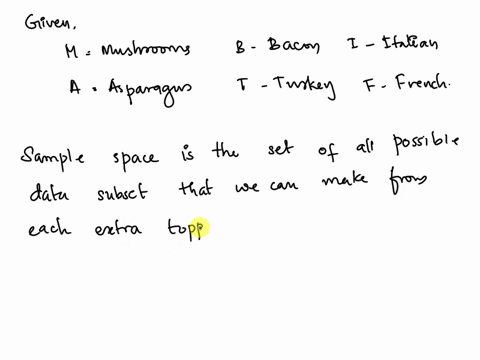 Given,
M = Mushrooms B - Bacon I - Italian
A = Asparagus T - Turkey F - French.
Sample space is the set of all possible
data subset that we can make from
each extra topp